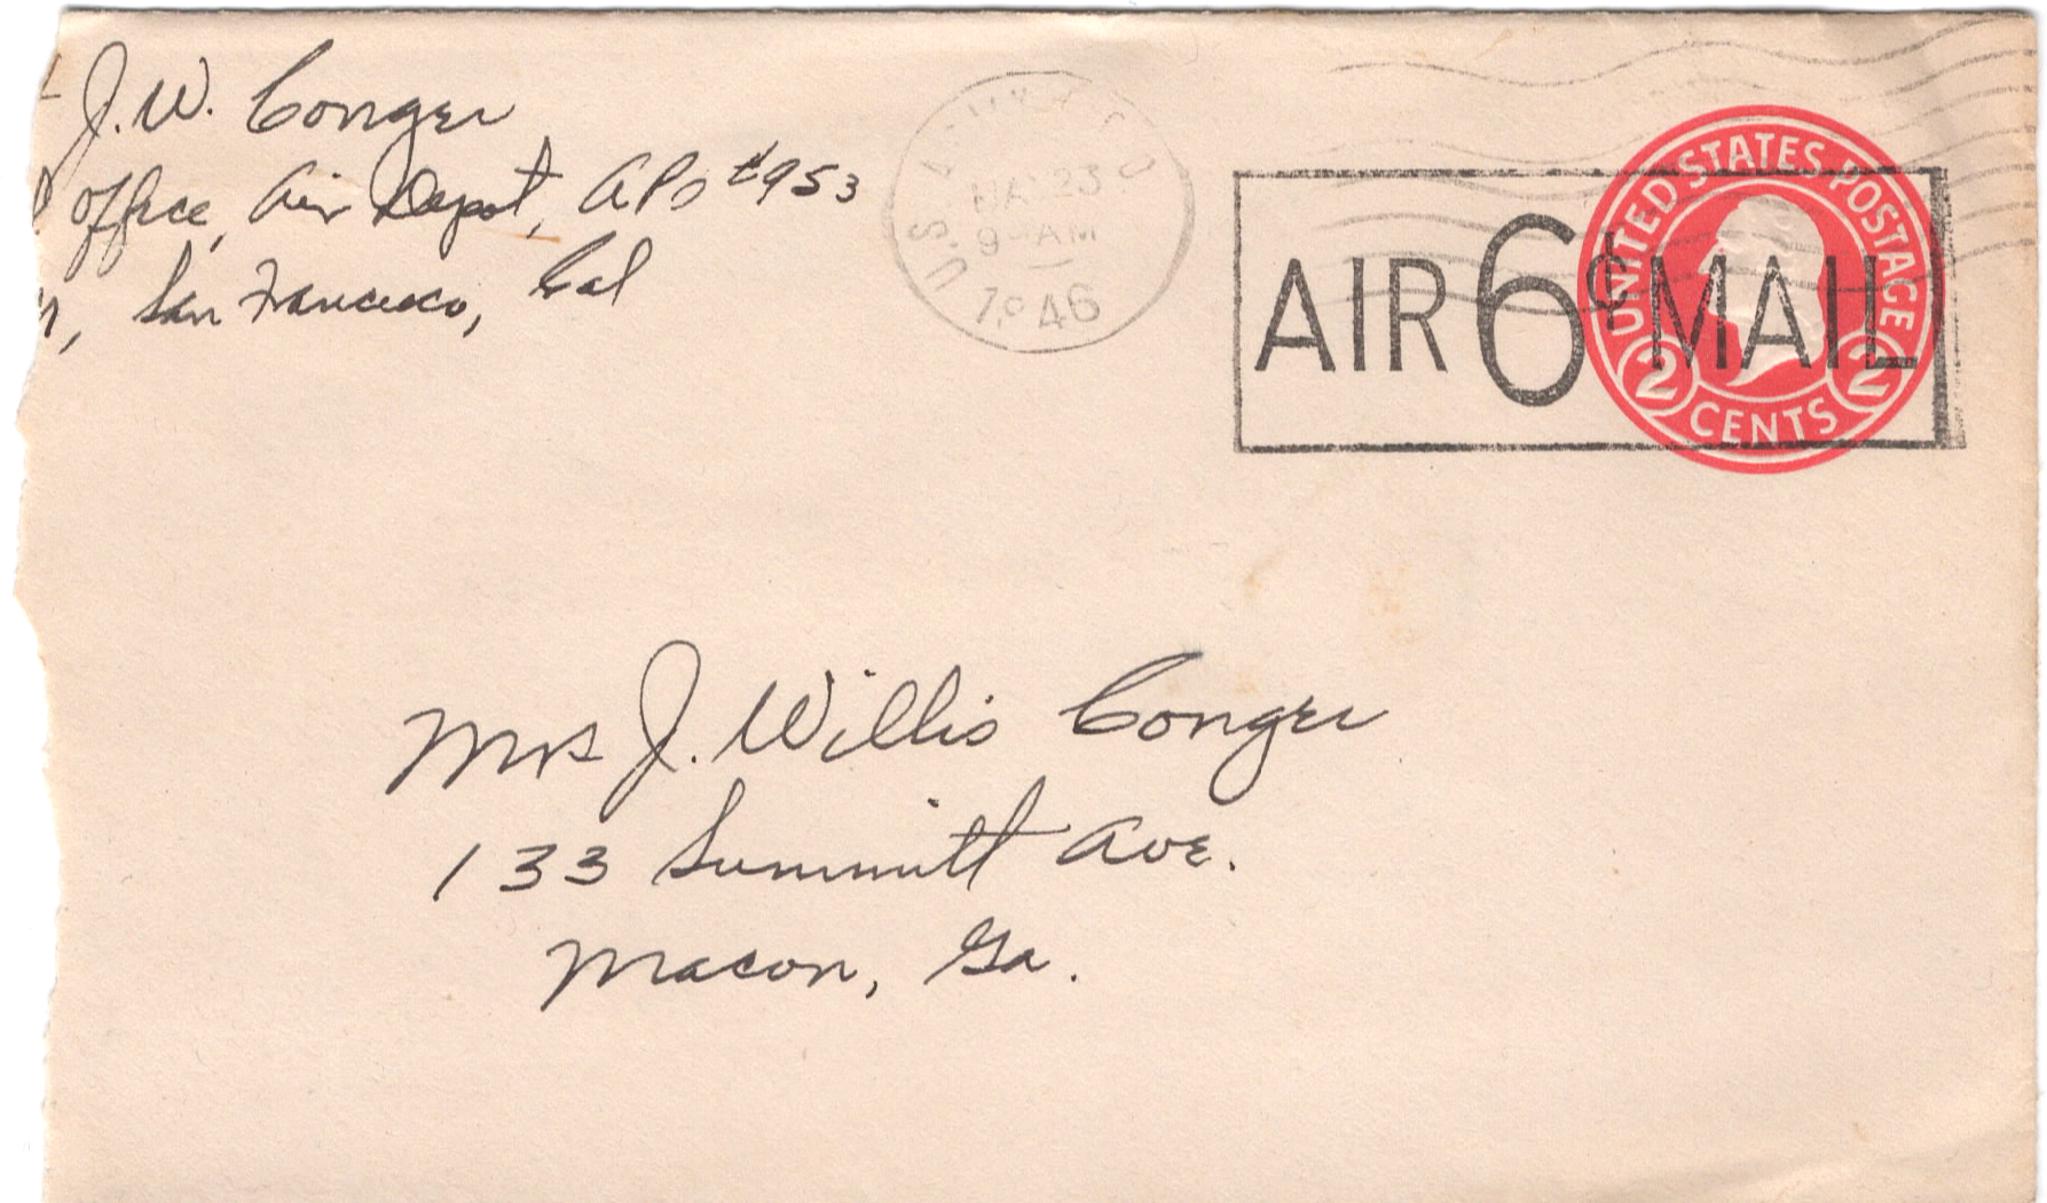 J.W. Conger
Office, Air Depot, APO #953
San Francisco, Cal
U.S. ARMY
23
9 AM
1946
AIR 6¢ MAIL
UNITED STATES POSTAGE
2 CENTS 2
Mrs J. Willis Conger
133 Summitt Ave.
Macon, Ga.